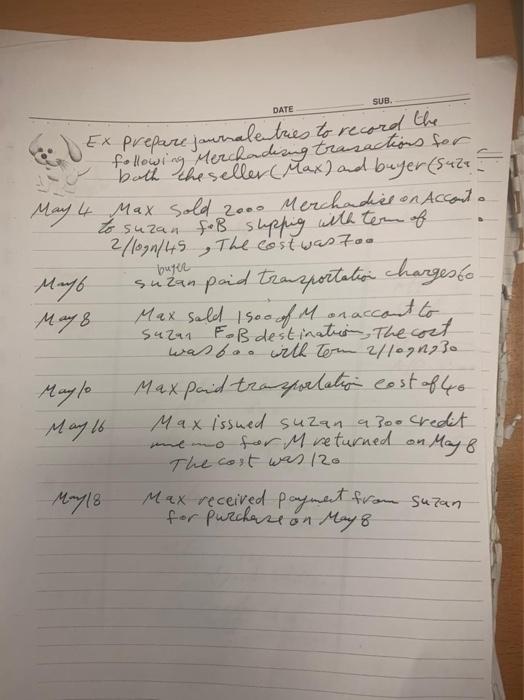 DATE SUB.
Ex prepare journal entries to record the
following Merchandising transactions for
both the seller (Max) and buyer (Suza
May 4 Max Sold 2000 Merchandise on Account
to suzan FoB shipping with term of
2/10, n/45, The cost was 700
buyer
May 6 suzan paid transportation charges 60
May 8 Max sold 1500 of M on account to
Suzan FoB destination, The cost
was 600 with Term 2/10, n, 30
May 10 Max paid transportation cost of 40
May 16 Max issued suzan a 300 credit
memo for M returned on May 8
The cost was 120
May 18 Max received payment from suzan
for purchase on May 8